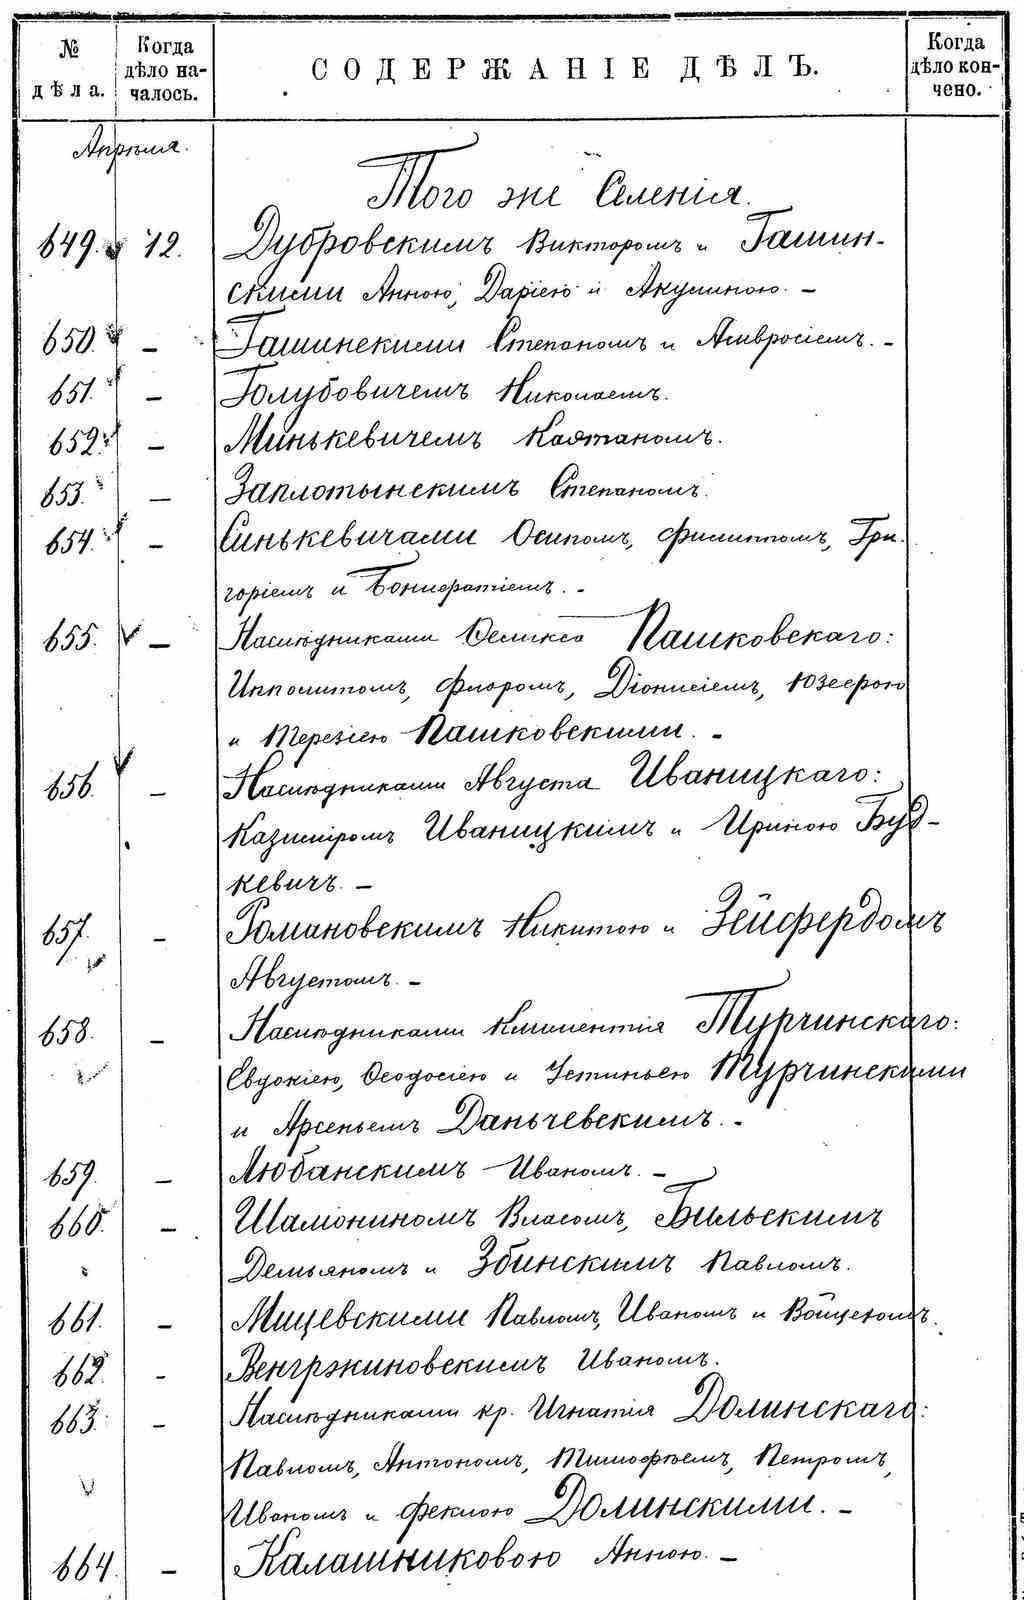 № дѣла. Когда дѣло началось. СОДЕРЖАНІЕ ДѢЛЪ. Когда дѣло кончено.
Апрѣля.
Того же Селенія.
649. 12. Дубровскимъ Викторомъ и Гашин-
скими Анною, Даріею и Акулиною. –
650. – Гашинскими Степаномъ и Амвросіемъ. –
651. – Голубовичемъ Николаемъ.
652. – Минькевичемъ Каэтаномъ.
653. – Заплотынскимъ Степаномъ.
654. – Синькевичами Осипомъ, Филиппомъ, Гри-
горіемъ и Бонифатіемъ. –
655. – Наслѣдниками Феликса Пашковскаго:
Ипполитомъ, Флоромъ, Діонисіемъ, Юзефою
и Терезіею Пашковскими. –
656. – Наслѣдниками Августа Иваницкаго:
Казиміромъ Иваницкимъ и Ириною Буд-
кевичъ. –
657. – Романовскимъ Никитою и Зейфердомъ
Августомъ. –
658. – Наслѣдниками Климентія Турчинскаго:
Евдокіею, Ѳеодосіею и Устиньею Турчинскими
и Арсеньемъ Даньчевскимъ. –
659. – Любанскимъ Иваномъ. –
660. – Шамониномъ Власомъ, Бильскимъ
Демьяномъ и Збинскимъ Павломъ.
661. – Мицевскими Павломъ, Иваномъ и Войцехомъ.
662. – Венгржиновскимъ Иваномъ.
663. – Наслѣдниками кр. Игнатія Долинскаго:
Павломъ, Антономъ, Тимофѣемъ, Петромъ,
Иваномъ и Феклою Долинскими. –
664. – Калашниковою Анною. –